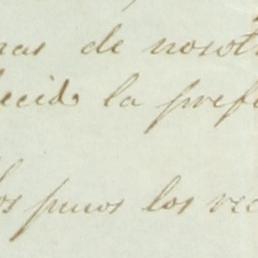 nas de nosot
lecido la pref
los pucos los rec